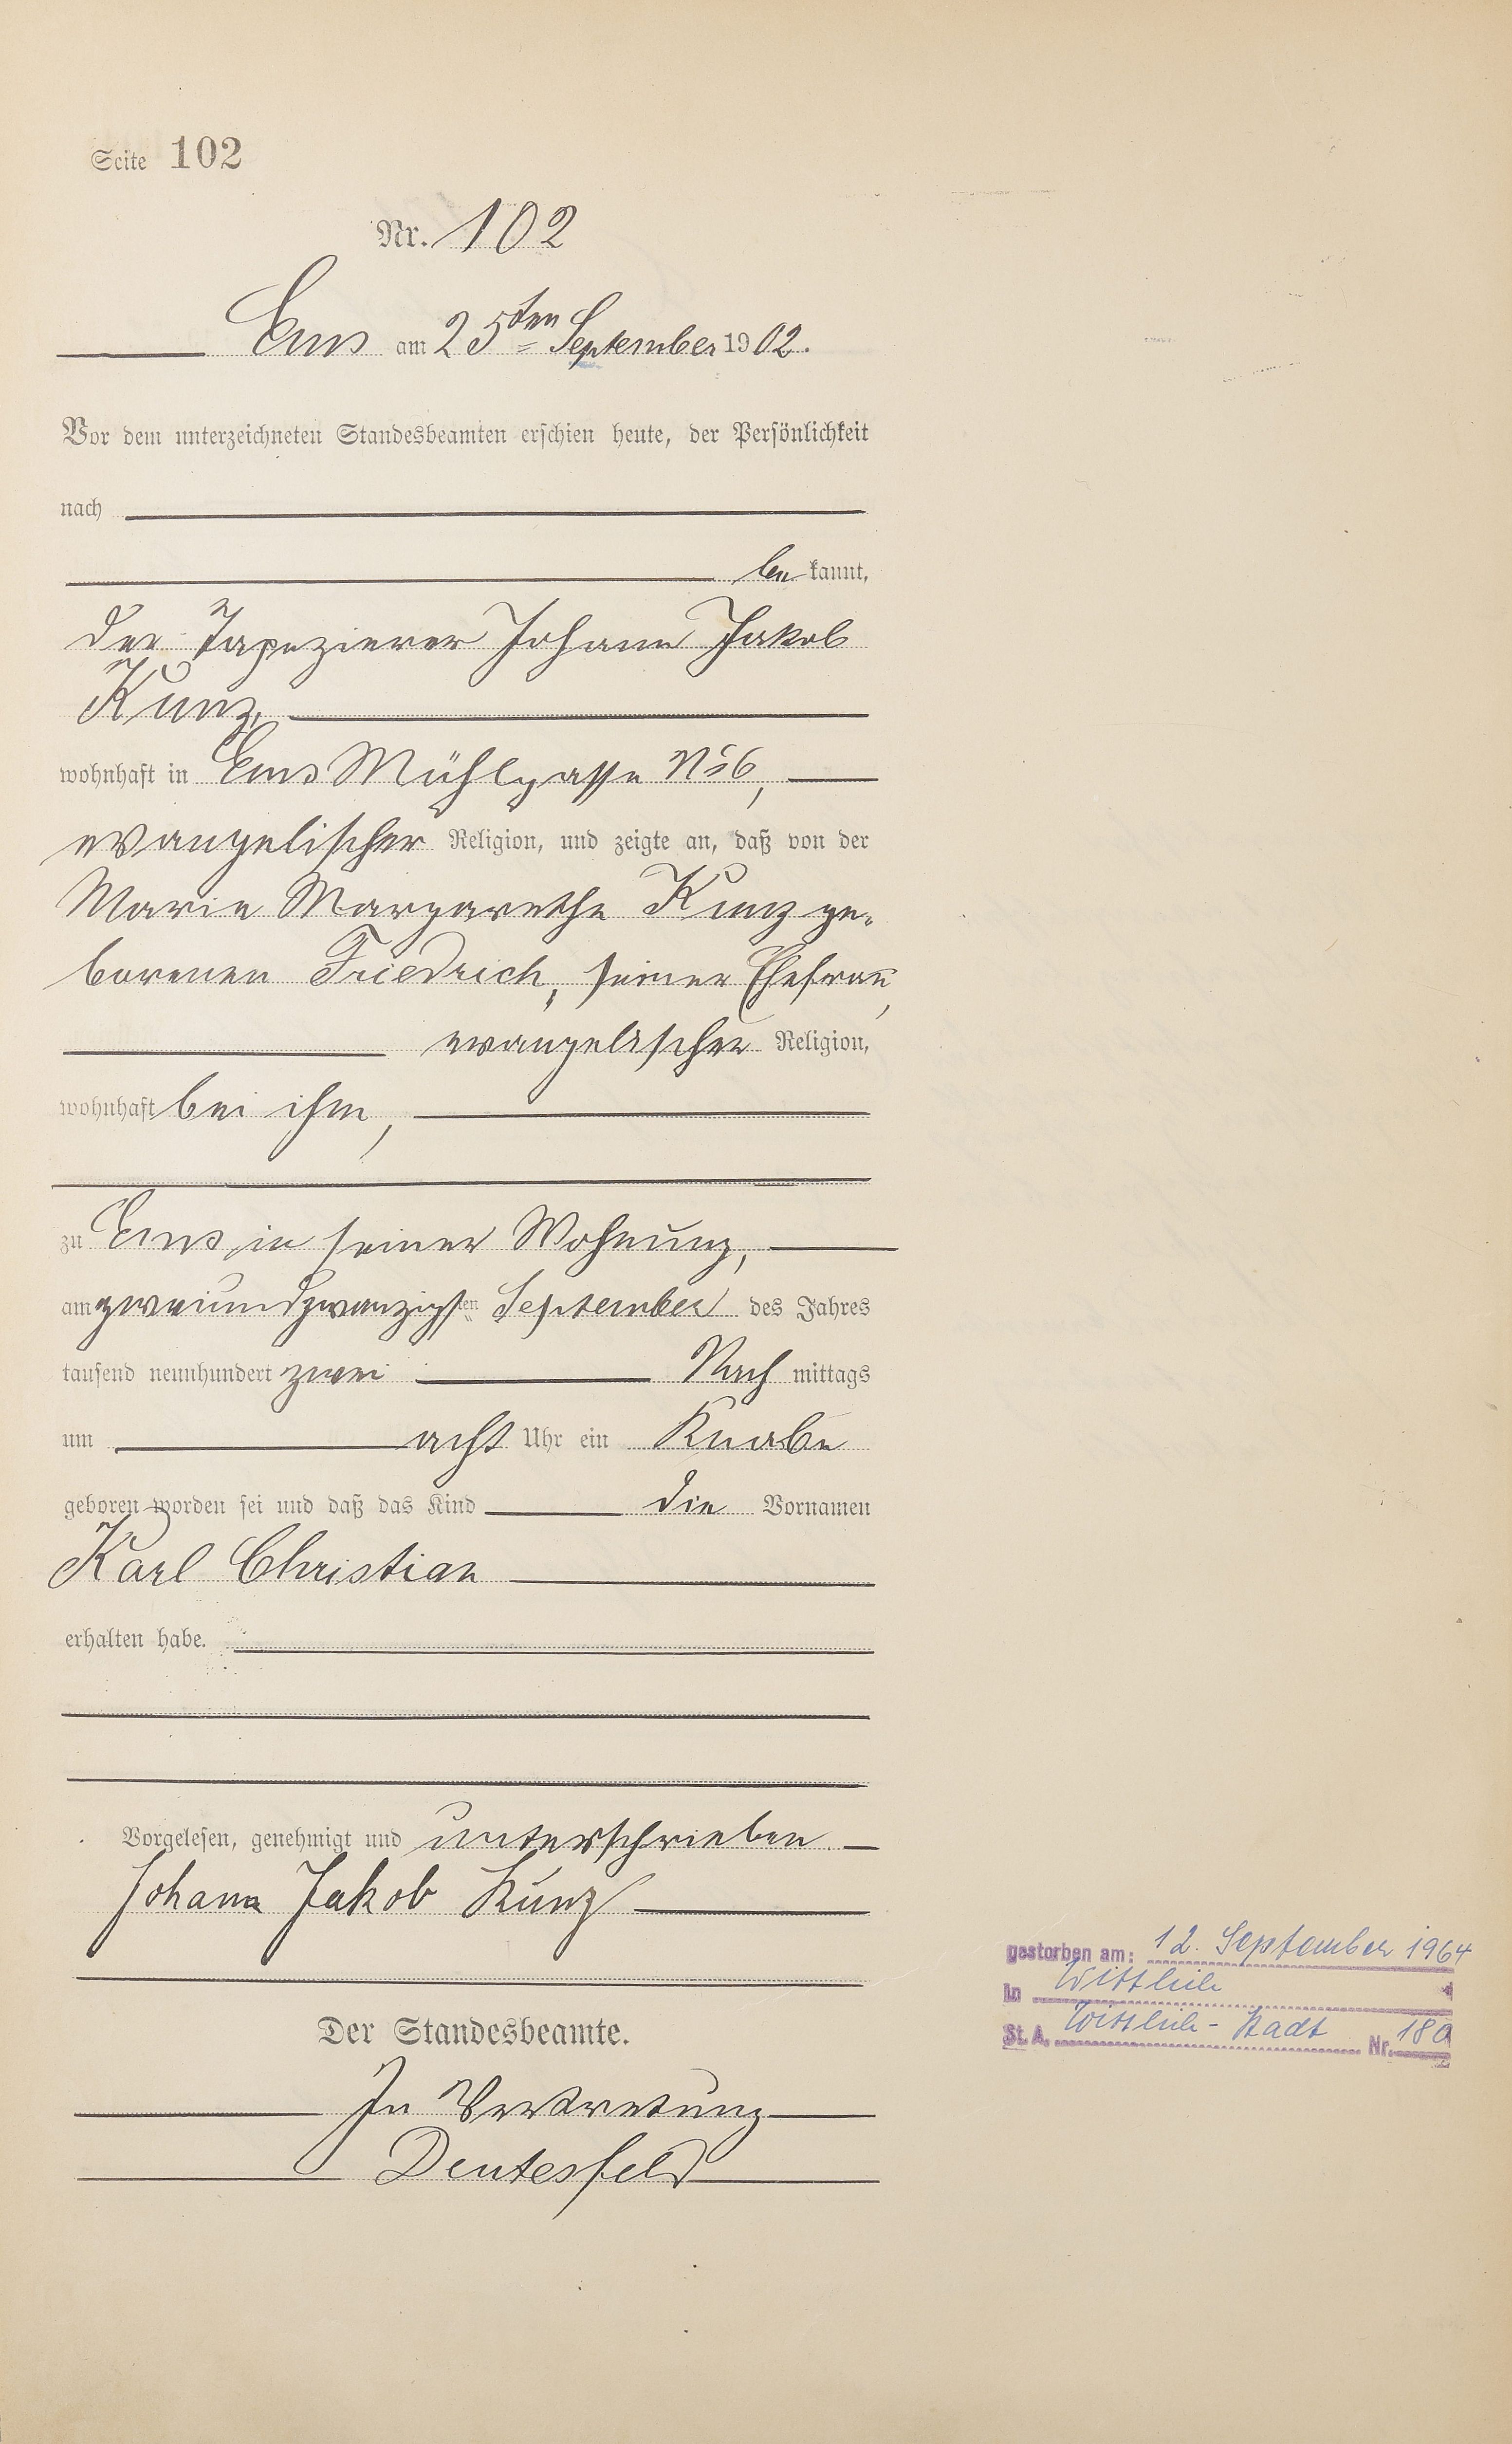 Seite 102
Nr. 102
Ems am 25ten September 1902.
Vor dem unterzeichneten Standesbeamten erschien heute, der Persönlichkeit
nach
be kannt,
der Tapezierer Johann Jakob
Kunz,
wohnhaft in Ems Mühlgasse No 6,
evangelischer Religion, und zeigte an, daß von der
Marie Margarethe Kunz ge-
borenen Friedrich, seiner Ehefrau,
evangelischer Religion,
wohnhaft bei ihm,
zu Ems in seiner Wohnung,
am zweiundzwanzigsten September des Jahres
tausend neunhundert zwei Nach mittags
um acht Uhr ein Knabe
geboren worden sei und daß das Kind die Vornamen
Karl Christian
erhalten habe.
Vorgelesen, genehmigt und unterschrieben.
Johann Jakob Kunz
Der Standesbeamte.
In Vertretung
Deutesfeld
gestorben am: 12. September 1964
in Wittlich
St. A. Wittlich-Stadt Nr. 180